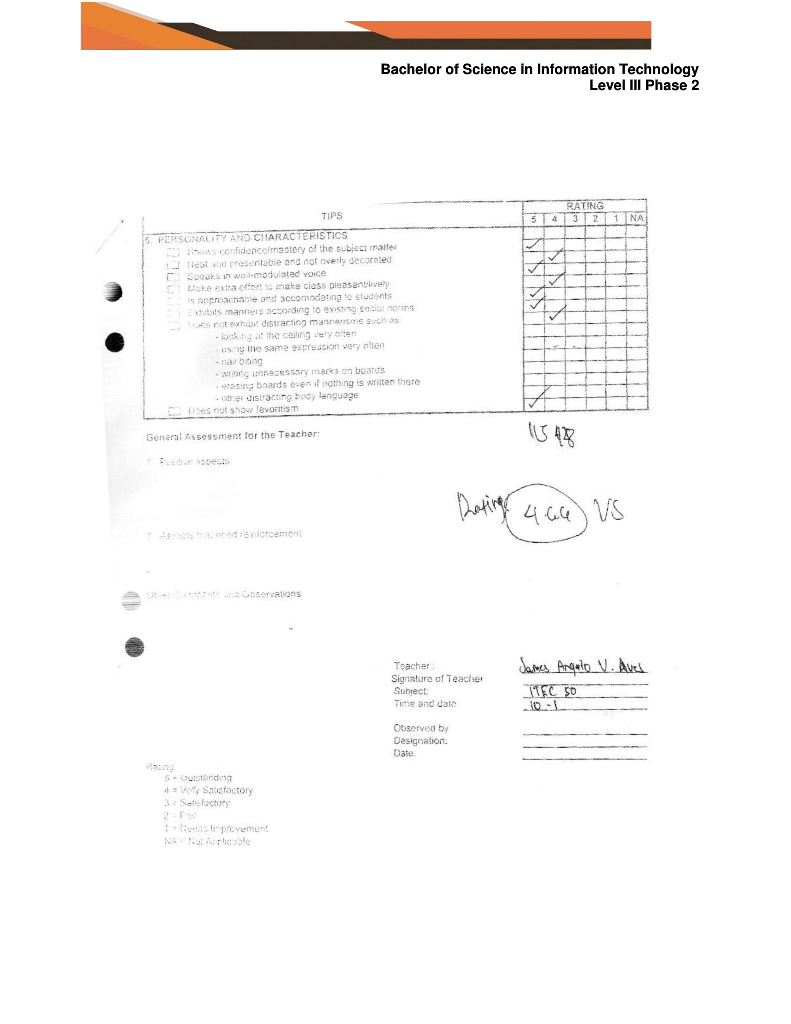 Bachelor of Science in Information Technology
Level III Phase 2
TIPS
RATING
5 4 3 2 1 NA
5. PERSONALITY AND CHARACTERISTICS
Shows confidence/mastery of the subject matter
Neat and presentable and not overly decorated
Speaks in well-modulated voice
Make extra effort to make class pleasant/lively
Is approachable and accomodating to students
Exhibits manners according to existing social norms
Does not exhibit distracting mannerisms such as
- looking at the ceiling very often
- using the same expression very often
- nail biting
- writing unnecessary marks on boards
- erasing boards even if nothing is written there
- other distracting body language
Does not show favoritism
General Assessment for the Teacher:
1. Positive Aspects
Rating: 4.66 VS
2. Aspects that need reinforcement
Other Comments and Observations
Teacher : James Angelo V. Aves
Signature of Teacher
Subject: ITEC 50
Time and date 10-1
Observed by
Designation:
Date:
Rating
5 = Outstanding
4 = Very Satisfactory
3 = Satisfactory
2 = Fair
1 = Needs Improvement
NA = Not Applicable